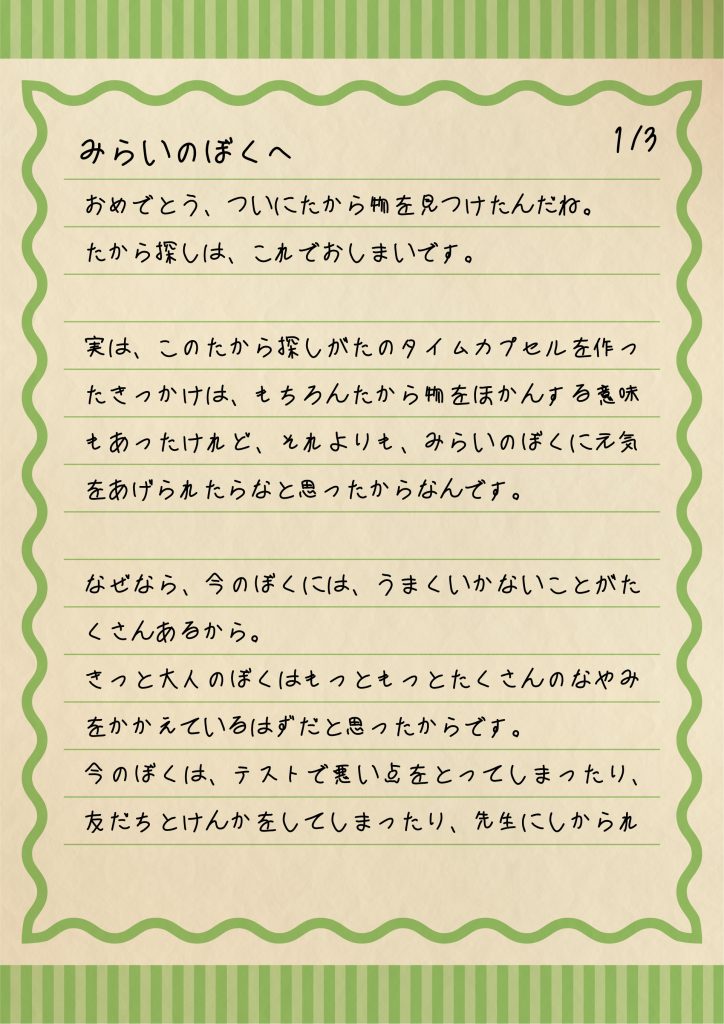 1/3
みらいのぼくへ
おめでとう、ついにたから物を見つけたんだね。
たから探しは、これでおしまいです。
実は、このたから探しがたのタイムカプセルを作っ
たきっかけは、もちろんたから物をほかんする意味
もあったけれど、それよりも、みらいのぼくに元気
をあげられたらなと思ったからなんです。
なぜなら、今のぼくには、うまくいかないことがた
くさんあるから。
きっと大人のぼくはもっともっとたくさんのなやみ
をかかえているはずだと思ったからです。
今のぼくは、テストで悪い点をとってしまったり、
友だちとけんかをしてしまったり、先生にしかられ